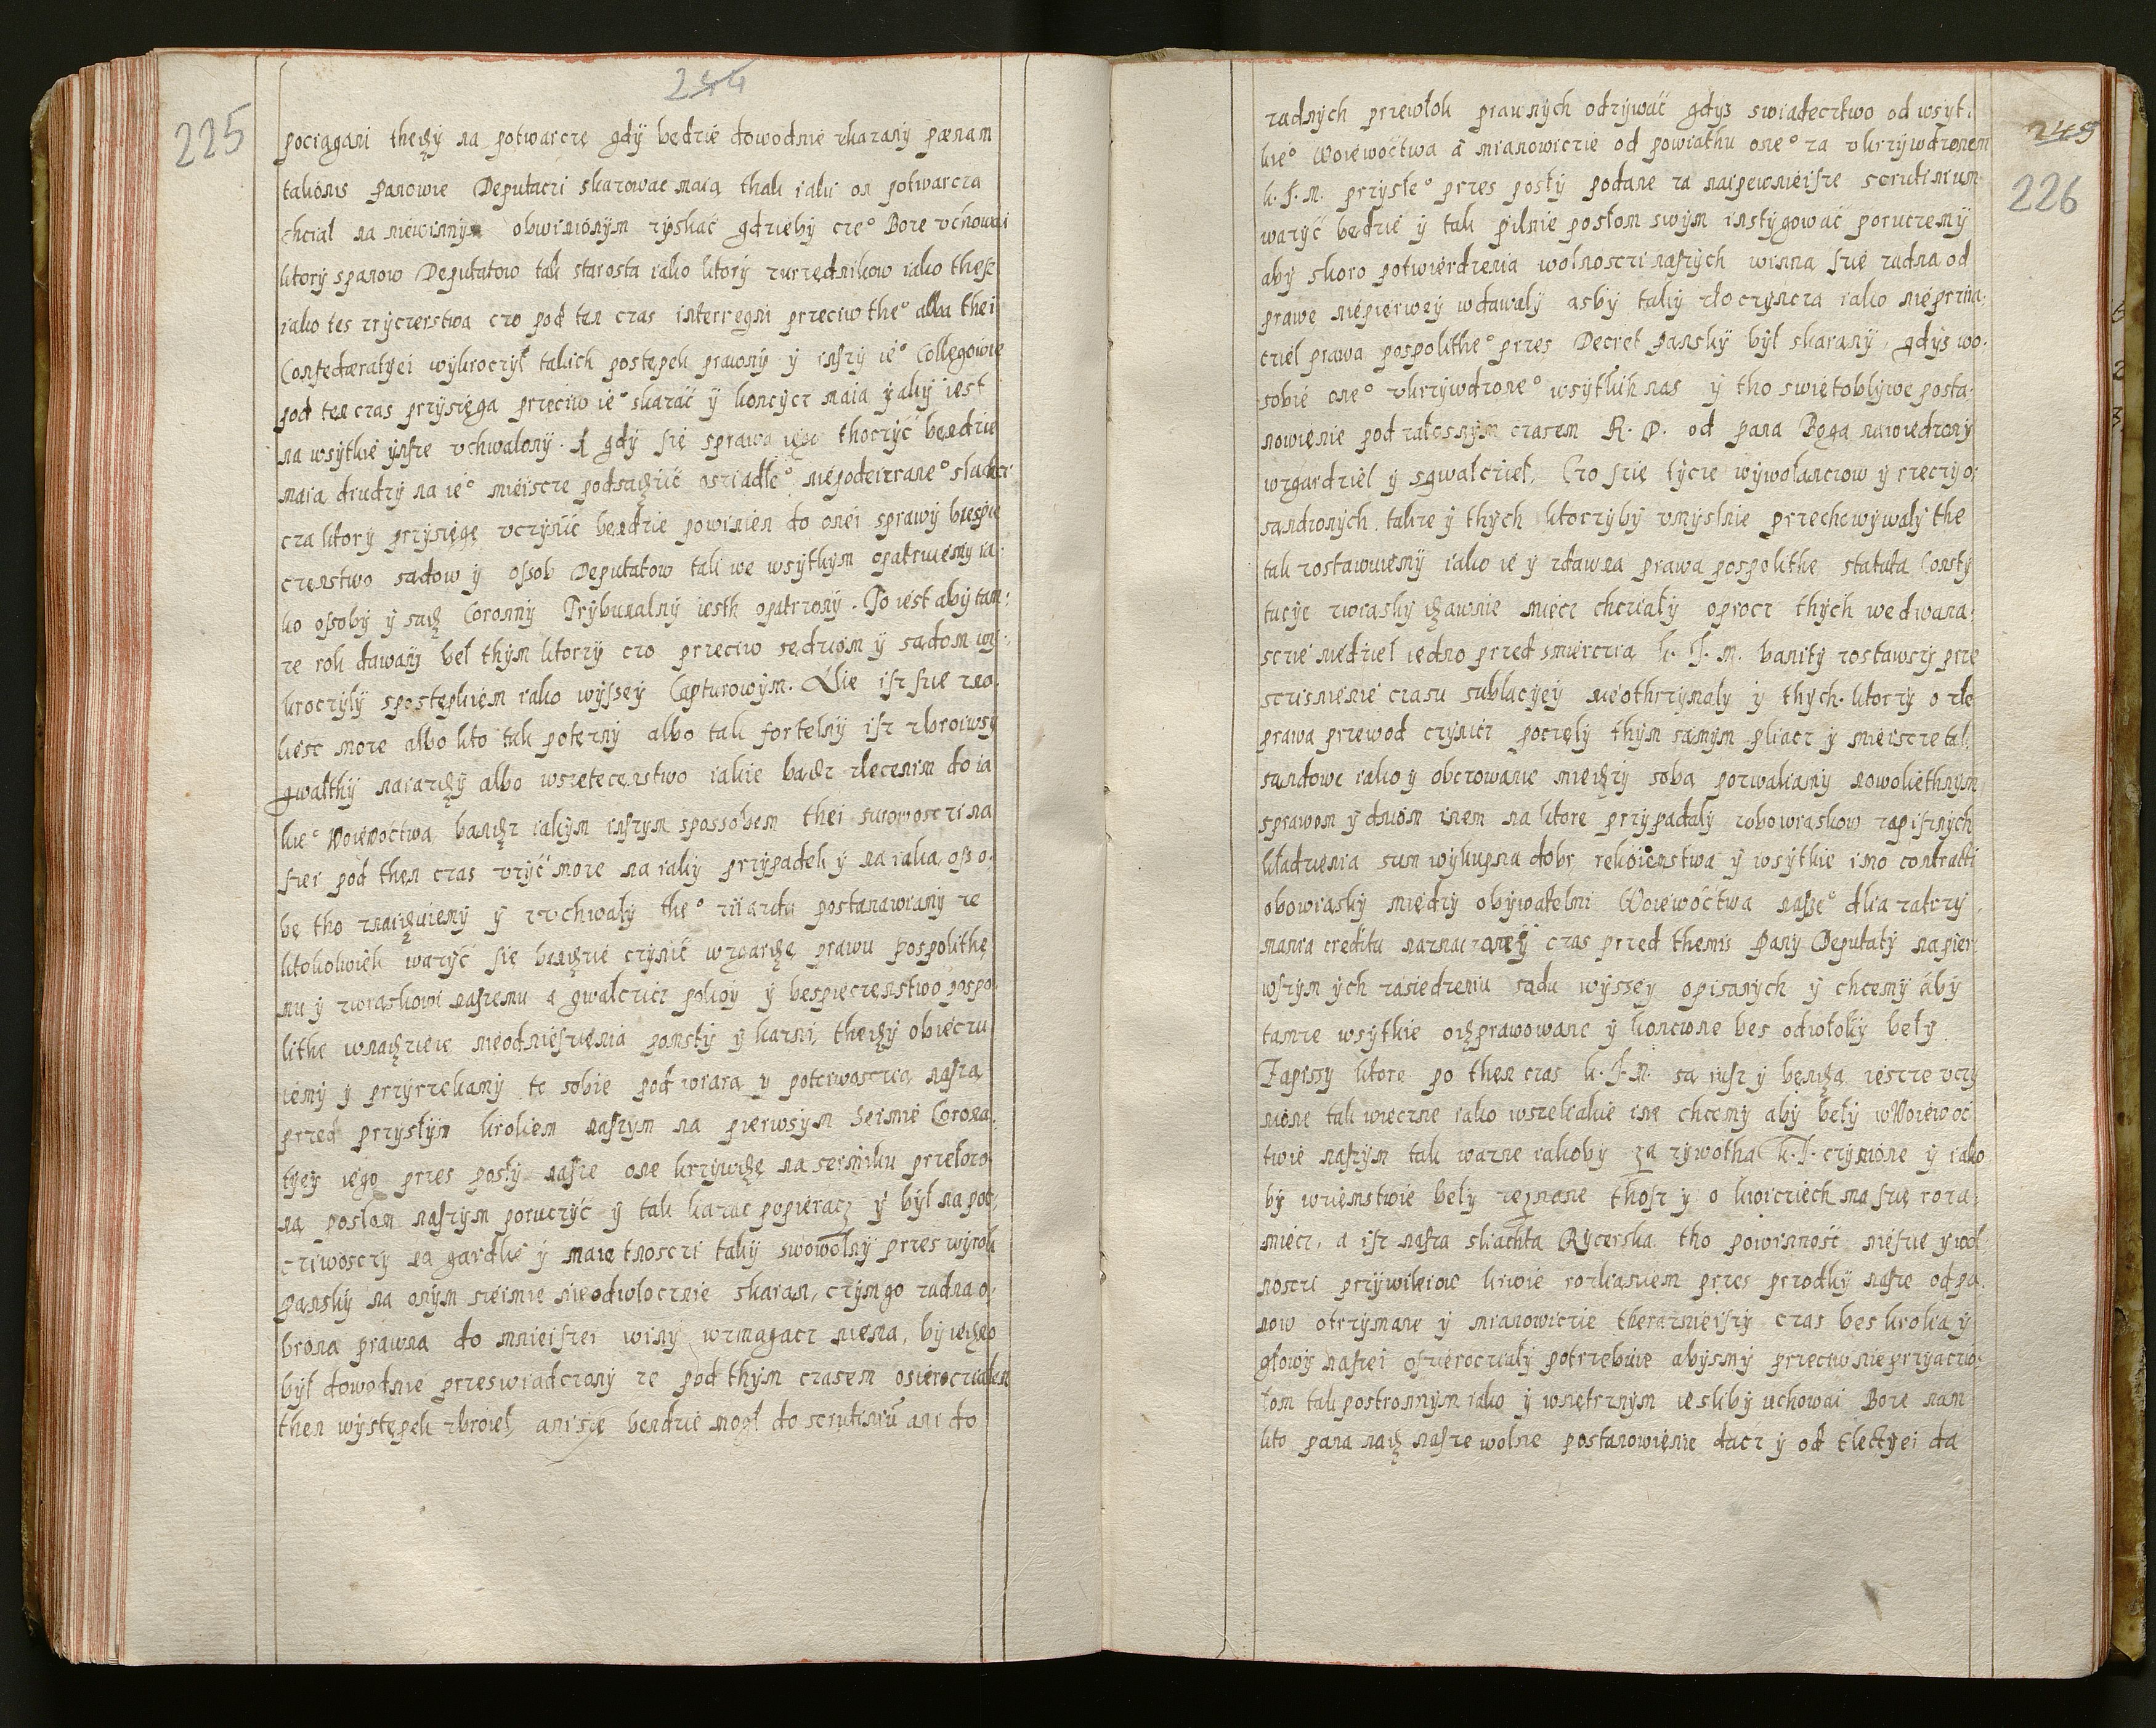 244
225
pociągani thedÿ na potwarcze gdÿ bedzie dowodnie vkazanÿ pœnam
talionis Panowie Deputaczi skazowac maią thak iako on potwarcza
chciał na niewinnÿm obwinionÿm zÿskać gdzieby cze° Boze vchowai
ktorÿ spanow Deputatow tak starosta iako ktorÿ zurzędnikow iako thesz
iako tes rÿczerstwa czo pod ten czas interregni przeciw the° albo thei
Confœderatÿei wÿkroczÿł takich postępek prawnÿ ÿ inszÿ ie° Collęgowie
pod ten czas przÿsięga przeciw ie° skazać ÿ konczÿcz maia ÿakÿ iest
na wsÿtkie ÿnsze vchwalonÿ. A gdÿ się sprawa thoczÿć bendzie
maia drudzÿ na ie° mieiscze podsadzić osziadłe° niepodeirzane° slachczi
cza ktorÿ przÿsięgę vczÿnić bendzie powinien do onei sprawÿ bespie
czenstwo sadow ÿ ossob Deputatow tak we wsÿtkÿm opatruiemÿ ia:
ko ossobÿ ÿ sądÿ Coronnÿ Trÿbunalnÿ iesth opatrzonÿ. To iest abÿ tam:
ze rok dawanÿ beł thÿm ktorzÿ czo przeciw sędziom ÿ sadom wÿ:
kroczÿlÿ spostępkiem iako wÿsseÿ Capturowÿm. Nie isz sie zna
liesc moze albo kto tak potęznÿ albo tak fortelnÿ isz zbroiwsÿ
gwałthÿ naiazdÿ albo wszetecenstwo iakie badz zleceniem do ia
kie° Woiewoctwa bandz iakÿm inszÿm spossobem thei surowosczi na
szei pod then czas vzÿć moze na iakÿ przÿpadek ÿ na iaka osso
be tho znaiduiemÿ ÿ zuchwałÿ the° ziazdu postanawiamÿ ze
ktokolwiek wazÿć sie bendzie czÿnić wzgardę prawu Pospolithe
mu ÿ zwiaskowi naszemu a gwałczicz pokoÿ ÿ bespieczenstwo pospo
lithe wnadzieie nieodniesienia pomstÿ ÿ karni, thedÿ obieczu
iemÿ ÿ przÿrzekamÿ to sobie pod wiara ÿ potcziwosczia nasza
przed przÿsłÿm krolem naszÿm na pierwsÿm Seimie Corona
tÿeÿ iego przes posłÿ nasze one krzÿwdę na seimiku przełozo
na posłom naszÿm poruczÿć ÿ tak karać popierać ÿ bÿł na pot
cziwosczÿ na gardle ÿ maietnosczi takÿ swowolnÿ przes wÿrok
panskÿ na onÿm seimie nieodwłocznie skaran, czÿm go zadna o
brona prawna do mnieiszei winÿ wzmagacz niema, bÿ iedno
bÿł dowodnie przeswiadczonÿ ze pod thÿm czasem osierocziałem
then wÿstępek zbroieł, ani sie bendzie mogł do scrutiniū ani do
245
226
zadnÿch przewłok prawnÿch odzÿwać gdÿs swiadectwo od wsÿt:
kie° Woiewoctwa á mianowiczie od powiathu one° za vkrzÿwdzonem
k. J. M. przÿsłe° przes posłÿ podane za naipewnieisze scrutinium
wazÿć bedzie ÿ tak pilnie posłom swÿm instÿgować poruczemÿ
abÿ skoro potwierdzenia wolnosczi naszÿch winna sie zadna od
prawe niepierweÿ wdawalÿ azbÿ takÿ złoczÿncza iako nieprzÿia
cziel prawa pospolithe° przes Decret Panskÿ bÿł skaranÿ, gdÿs wo
sobie one° vkrzÿwdzone° wsÿtkich nas ÿ tho swiętoblÿwe posta:
nowienie pod załosnÿm czasem R. P. od pana Boga nawiedzonÿ
wzgardzieł ÿ zgwałczieł, Czo się tÿcze wÿwołanczow ÿ rzeczÿ o:
sandzonÿch, takze ÿ thÿch ktorzÿbÿ vmÿslnie przechowÿwalÿ the
tak zostawuiemÿ iako ie ÿ zdawna prawa pospolithe statuta Constÿ
tucÿe zwiaskÿ dzawnie miecz chcziałÿ oprocz thÿch we dwana:
scie niedziel iedno przed smiercia k. J. M. banitÿ zostawszÿ prze
scisnienie czasu sublacÿeÿ nieothrzÿmalÿ ÿ thÿch. ktorzÿ o złe
prawa przewod czÿnicz poczęlÿ thÿm samÿm pliacz ÿ mieiscze tak
sandowe iako ÿ obczowanie miedzÿ soba pozwaliamÿ nowoliethnÿm
sprawom ÿ dniom inem na ktore przÿpadałÿ zobowiaskow zapisnÿch
kładzienia sum wÿkupna dobr rekoiemstwa ÿ wsÿtkie imo contracti
obowiaskÿ miedzÿ obÿwatelmi Woiewóctwa nasze° dlia zatrzÿ
mania creditu naznaczoneÿ czas przed themis Panÿ Deputatÿ na pier
wszÿm ÿch zasiedzeniu sadu wÿsseÿ opisanÿch ÿ chcemÿ ábÿ
tamze wsÿtkie odprawowane ÿ konczone bes odwłokÿ bełÿ.
Zapissÿ ktore po then czas k. J. M. sa iusz ÿ bęndą iescze vczÿ
nione tak wieczne iako wszeliakie ine chcemÿ abÿ bełÿ wWoiewoc
twie naszÿm tak wazne iakobÿ za zÿwotha k. J. czÿnione ÿ iako
bÿ wziemstwie bełÿ zeznane thosz ÿ o kwicziech ma się roza:
miecz, a isz nasza sliachta Rÿcerska tho powinność niesie ÿ wol
nosczi przÿwileiow krwie rozlianiem przes przodkÿ nasze od pa
now otrzÿmane ÿ mianowiczie therazneiszÿ czas bes krolia ÿ
głowÿ naszei osierocziałÿ potrzebuie abÿsmÿ przeciw nieprzÿiaczio:
łom tak postronnÿm iako ÿ wnętrznÿm ieslibÿ vchowai Boze nam
kto pana nad nasze wolne postanowienie dácz ÿ od Elecktÿei da